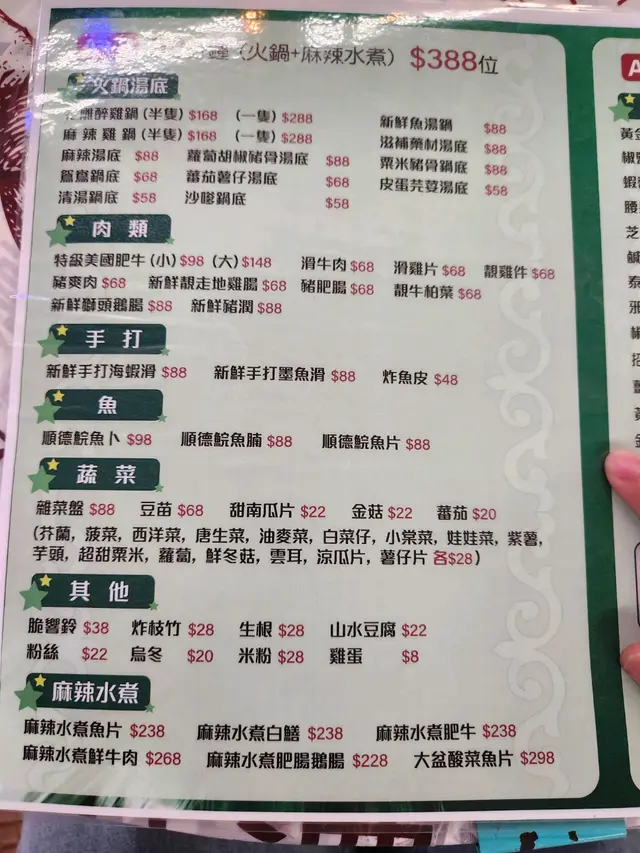 鐘 (火鍋+麻辣水煮) $388位
火鍋湯底
花雕醉雞鍋(半隻) $168 (一隻) $288
麻辣雞鍋(半隻) $168 (一隻) $288
麻辣湯底 $88 蘿蔔胡椒豬骨湯底 $88
鴛鴦鍋底 $68 蕃茄薯仔湯底 $68
清湯鍋底 $58 沙嗲鍋底 $58
新鮮魚湯鍋 $88
滋補藥材湯底 $88
粟米豬骨鍋底 $88
皮蛋芫荽湯底 $58
肉類
特級美國肥牛(小) $98 (大) $148 滑牛肉 $68 滑雞片 $68 靚雞件 $68
豬爽肉 $68 新鮮靚走地雞腸 $68 豬肥腸 $68 靚牛柏葉 $68
新鮮獅頭鵝腸 $88 新鮮豬潤 $88
手打
新鮮手打海蝦滑 $88 新鮮手打墨魚滑 $88 炸魚皮 $48
魚
順德鯇魚卜 $98 順德鯇魚腩 $88 順德鯇魚片 $88
蔬菜
雜菜盤 $88 豆苗 $68 甜南瓜片 $22 金菇 $22 蕃茄 $20
(芥蘭, 菠菜, 西洋菜, 唐生菜, 油麥菜, 白菜仔, 小棠菜, 娃娃菜, 紫薯,
芋頭, 超甜粟米, 蘿蔔, 鮮冬菇, 雲耳, 涼瓜片, 薯仔片 各$28)
其他
脆響鈴 $38 炸枝竹 $28 生根 $28 山水豆腐 $22
粉絲 $22 烏冬 $20 米粉 $28 雞蛋 $8
麻辣水煮
麻辣水煮魚片 $238 麻辣水煮白鱔 $238 麻辣水煮肥牛 $238
麻辣水煮鮮牛肉 $268 麻辣水煮肥腸鵝腸 $228 大盆酸菜魚片 $298